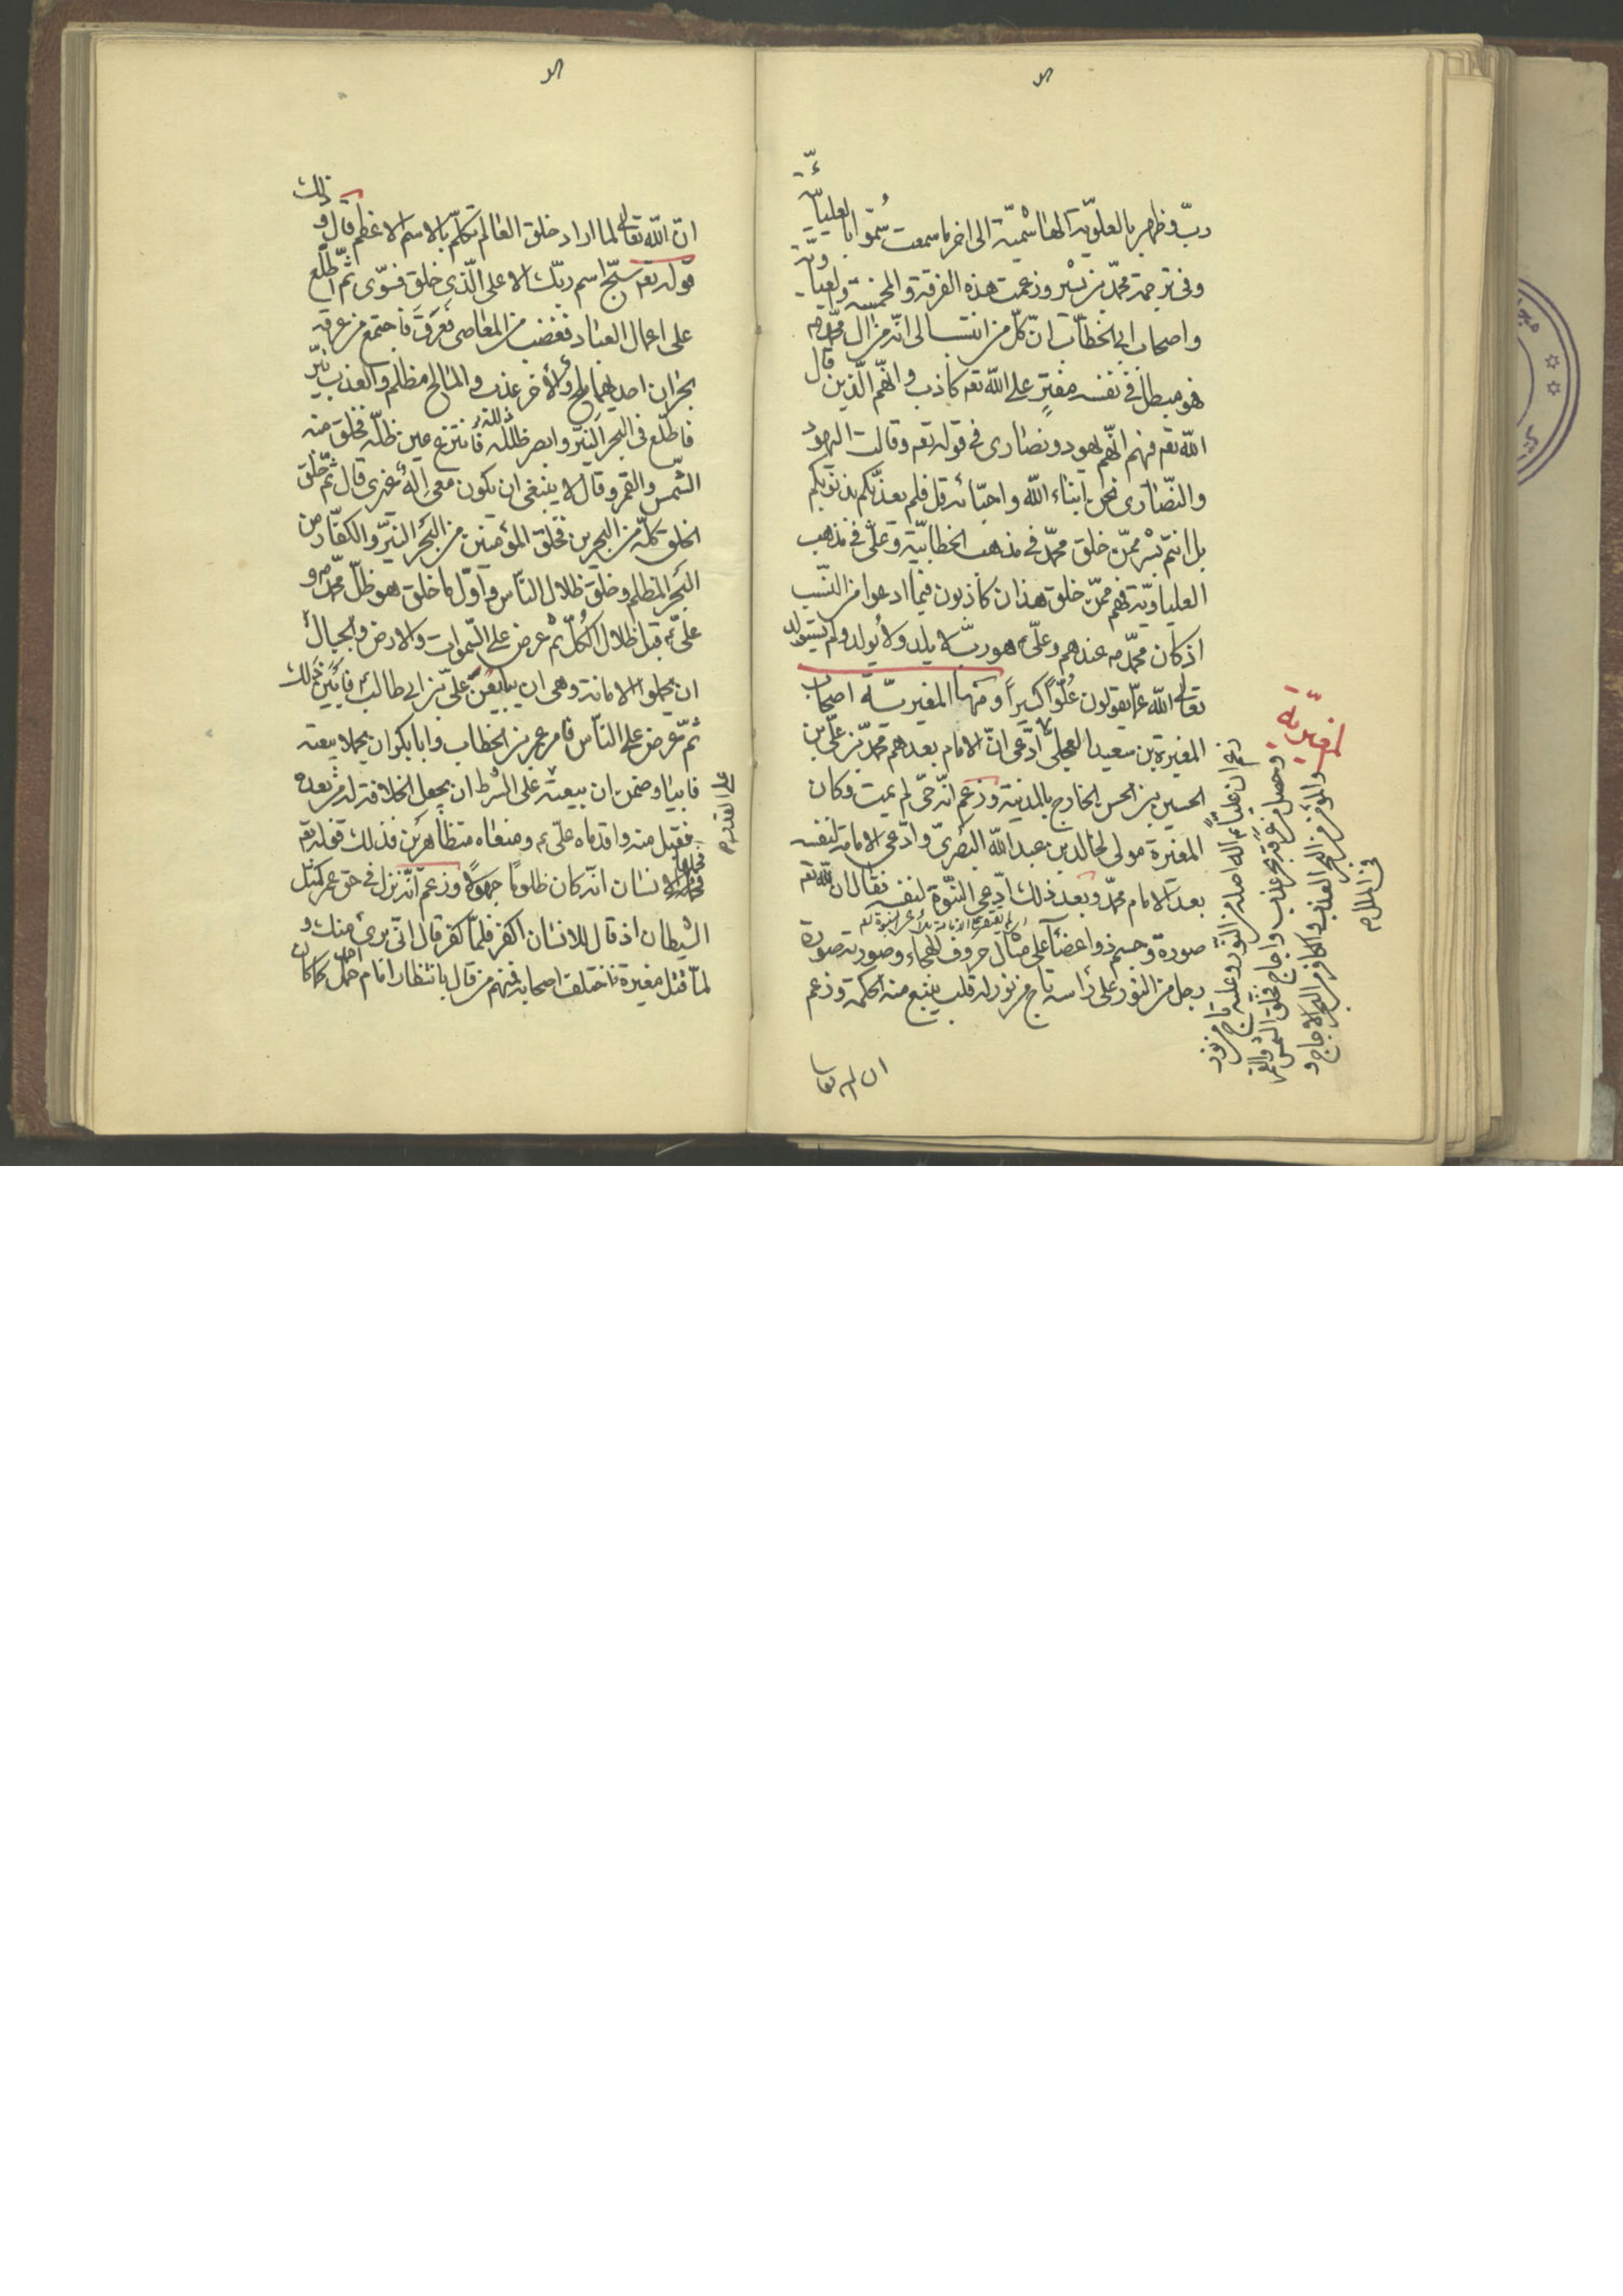 ربّ وظهر بالعلويّة الهاشميّة الى اخر ما سمعت سُمّوا بالعليائيّة
وفى ترجمة محمّد بن بشير وزعمت هذه الفرقة والمخمّسة والعلياويّة
واصحاب ابى الخطّاب انّ كلّ من انتسب الى انّه من ال محمّد ص
فهو مبطل فى نفسه مفترٍ على الله تعـ كاذب وانّهم الّذين قال
الله تعـ فيهم انّهم يهود ونصارى فى قوله تعـ وقالت اليهود
والنّصارى نحن ابناء الله واحبّائه قل فلم يعذّبكم بذنوبكم
بل انتم بشر ممّن خلق محمّد فى مذهب الخطابيّة وعلىّ فى مذهب
العلياويّة فهم ممّن خلق هذان كاذبون فيما ادعوا من النّسب
اذ كان محمّد ص عندهم وعلىّ ع هو ربّ لا يلد ولا يولد ولم يستولد
تعالى الله عمّا يقولون عُلُوّاً كبيراً ومنها المغيريّة اصحاب
المغيرة بن سعيد العجلى ادّعى انّ الامام بعدهم محمّد بن علىّ بن
الحسين بن الحسن الخارج بالمدينة وزعم انّه حىّ لم يمت وكان
المغيرة مولى لخالد بن عبد الله البصرىّ وادّعى الامامة لنفسه
بعد الامام محمّد وبعد ذلك ادّعى النّبوّة لنفسه فقال ان لله تعـ
صورة وجسم ذو اعضآء على مثال حروف الهجاء وصورته صورة
رجل من النور على رأسه تاج من نور له قلب ينبع منه الحكمة وزعم
ان الله تعا
المغيريّة
فى الملل
انّ الله تعالى لما اراد خلق العالم تكلّم بالاسم الاعظم قال وذلك
قوله تعـ سبّح اسم ربّك الاعلى الّذى خلق فسوّى ثمّ اطّلع
على اعمال العباد فغضب من المعاصى فعرق فاجتمع من عرقه
بحران احديهما مالح والأخر عذب والمالح مظلم والعذب نيّر
فاطّلع فى البحر النيّر وابصر ظلّه فانتزع عين ظلّه فخلق منه
الشّمس والقمر وقال لا ينبغى ان يكون معى إله غيرى قال ثمّ خلق
الخلق كلّه من البحرين فخلق المؤمنين من البحر النيّر والكفّار من
البحر المظلم وخلق ظلال النّاس واوّل ما خلق هو ظلّ محمّد ص و
علىّ ع قبل ظلال الكُلّ ثمّ عرض على السّموات والارض والجبال
ان يحملوا الامانة وهى ان يبايعن علىّ بن ابى طالب فابَين ذلك
ثمّ عرض على النّاس فامر عمر بن الخطاب وابا بكر ان يحملا بيعته
فابيا وضمن ان بيعته على الشّرط ان يجعل الخلافة له من بعده
فقبل منه واقدماه علىّ ع ومنعاه متظاهرين فذلك قوله تعـ
فحملها الانسان انّه كان ظلومًا جهولًا وزعم انّه نزل فى حق عمر كمثل
الشّيطان اذ قال للانسان اكفر فلمّا كفر قال انّى برئ منك و
لمّا قتل مغيرة اختلف اصحابه فمنهم من قال بانتظار امام كما كان